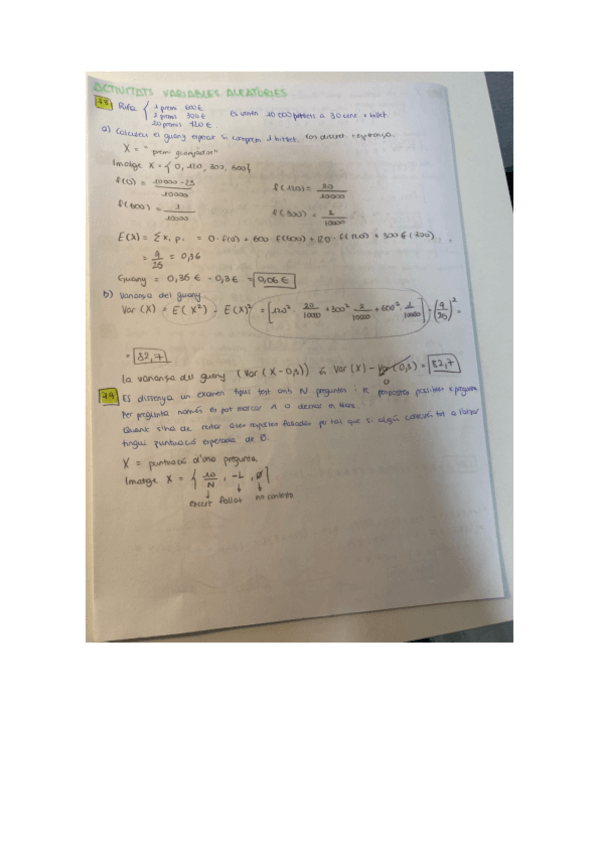 ACTIVITATS VARIABLES ALEATÒRIES
78 Rifa { 1 premi 600€
2 premis 300€
20 premis 120€
Es venen 10 000 bitllets a 30 cent. x bitllet.
a) Calculeu el guany esperat si comprem 1 bitllet. Cas discret esperança.
X = "premi guanyador"
Imatge X = { 0, 120, 300, 600}
f(0) = 10000 - 23 / 10000
f(120) = 20 / 10000
f(600) = 1 / 10000
f(300) = 2 / 10000
E(X) = Σ xi pi = 0 · f(0) + 600 · f(600) + 120 · f(120) + 300 f(300) =
= 9/25 = 0,36
Guany = 0,36€ - 0,3€ = 0,06€
b) Variança del guany
Var (X) = E(X²) - E(X)² = [120² · 20/10000 + 300² · 2/10000 + 600² · 1/10000] - (9/25)² =
= 82,7
la variança del guany (Var (X - 0,3)) és Var (X) - Var (0,3) = 82,7
0
79 Es dissenya un examen tipus test amb N preguntes i K respostes possibles x pregunta
Per pregunta només es pot marcar 1 o deixar en blanc.
Quant s'ha de restar a les respostes fallades per tal que si algún contesta tot a l'atzar
tingui puntuació esperada de 0.
X = puntuació d'una pregunta
Imatge X = { 10/N , -L , 0 }
encert fallat no contesta